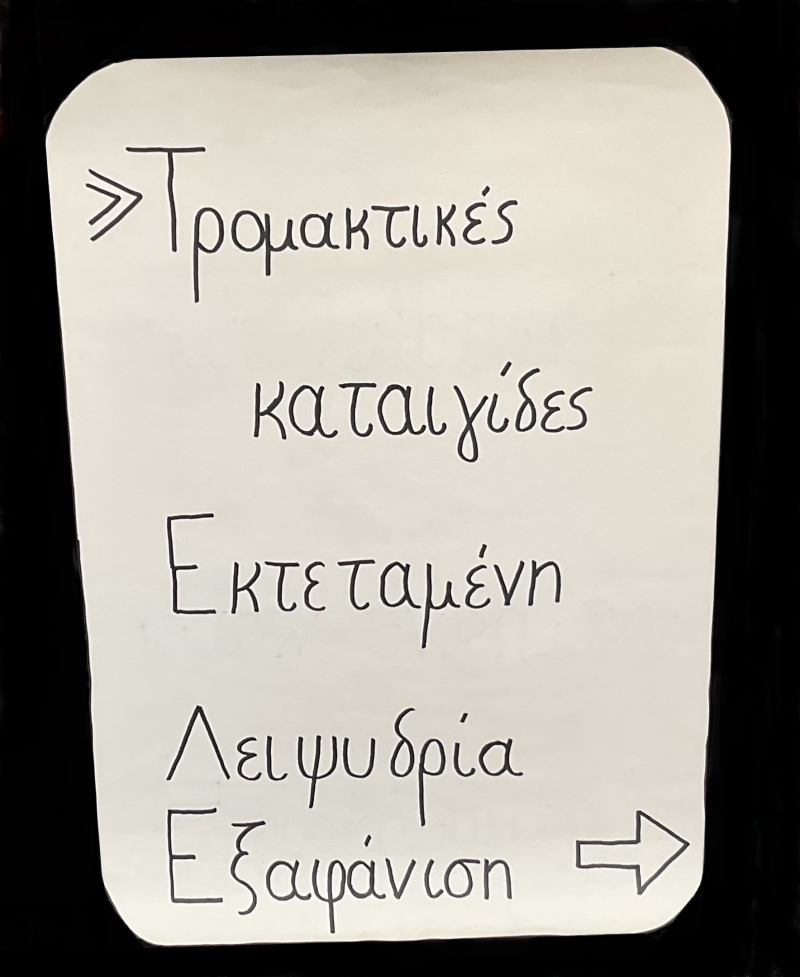 » Τρομακτικές
καταιγίδες
Εκτεταμένη
Λειψυδρία
Εξαφάνιση ⇨